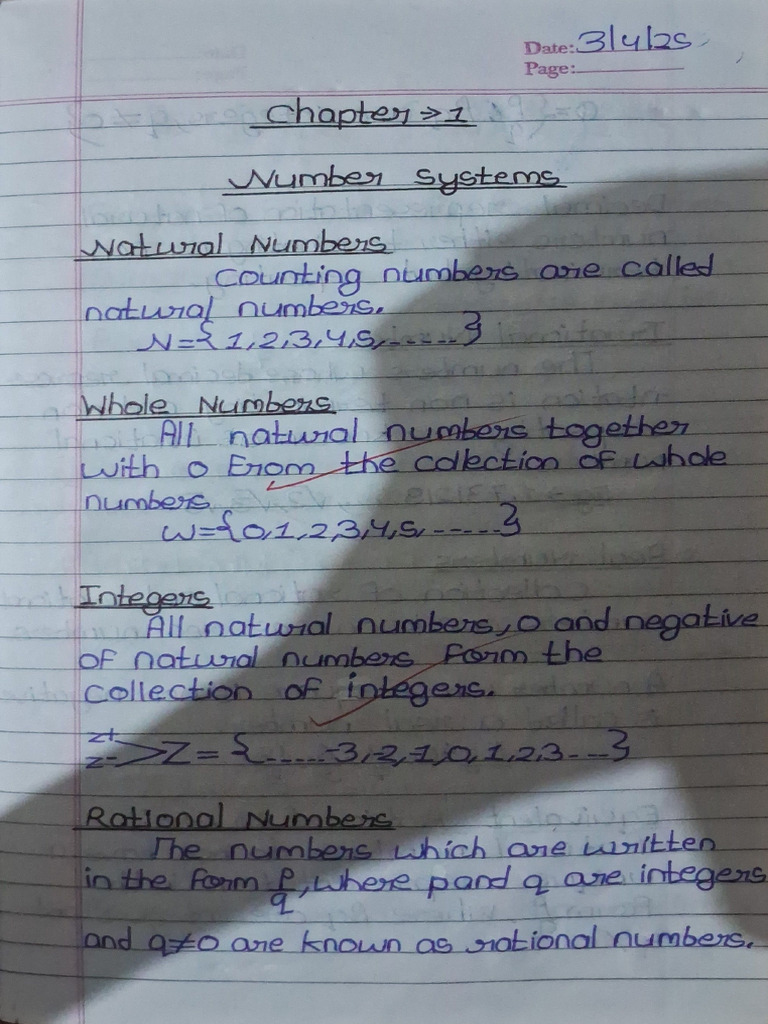 Date: 3/4/25
Page:
Chapter → 1
Number Systems
Natural Numbers
Counting numbers are called
natural numbers.
N={1,2,3,4,5,......}
Whole Numbers
All natural numbers together
with 0 From the collection of whole
numbers
W={0,1,2,3,4,5,......}
Integers
All natural numbers, 0 and negative
of natural numbers form the
collection of integers.
Z+
Z- > Z = {......-3,-2,-1,0,1,2,3....}
Rational Numbers
The numbers which are written
in the form p/q, where p and q are integers
and q≠0 are known as rational numbers.